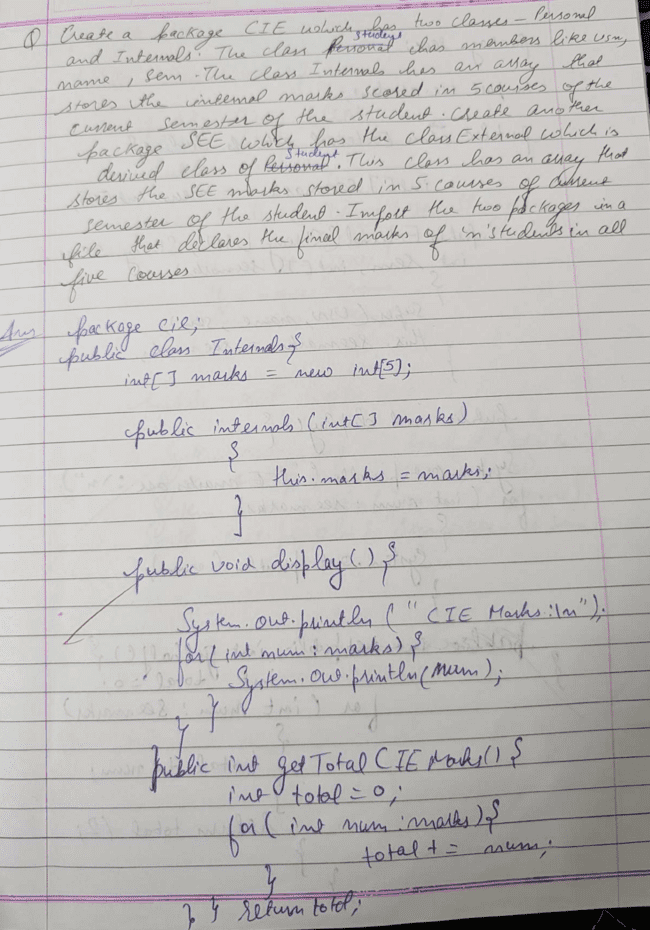 Q Create a package CIE which has two classes - Personal
and Internals. The class Student has members like usn,
name, sem. The class Internals has an array that
stores the internal marks scored in 5 courses of the
current semester of the student. Create another
package SEE which has the class External which is
derived class of Student. This class has an array that
stores the SEE marks stored in 5 courses of current
semester of the student. Import the two packages in a
file that declares the final marks of 'n' students in all
five courses
Ans package cie;
public class Internals {
int[] marks = new int[5];
public internals (int[] marks)
{
this.marks = marks;
}
public void display() {
System.out.println (" CIE Marks:\n");
for( int num : marks) {
System.out.println(num);
}
}
public int getTotalCIEMarks() {
int total = 0;
for( int num : marks) {
total += num;
}
} } return total;